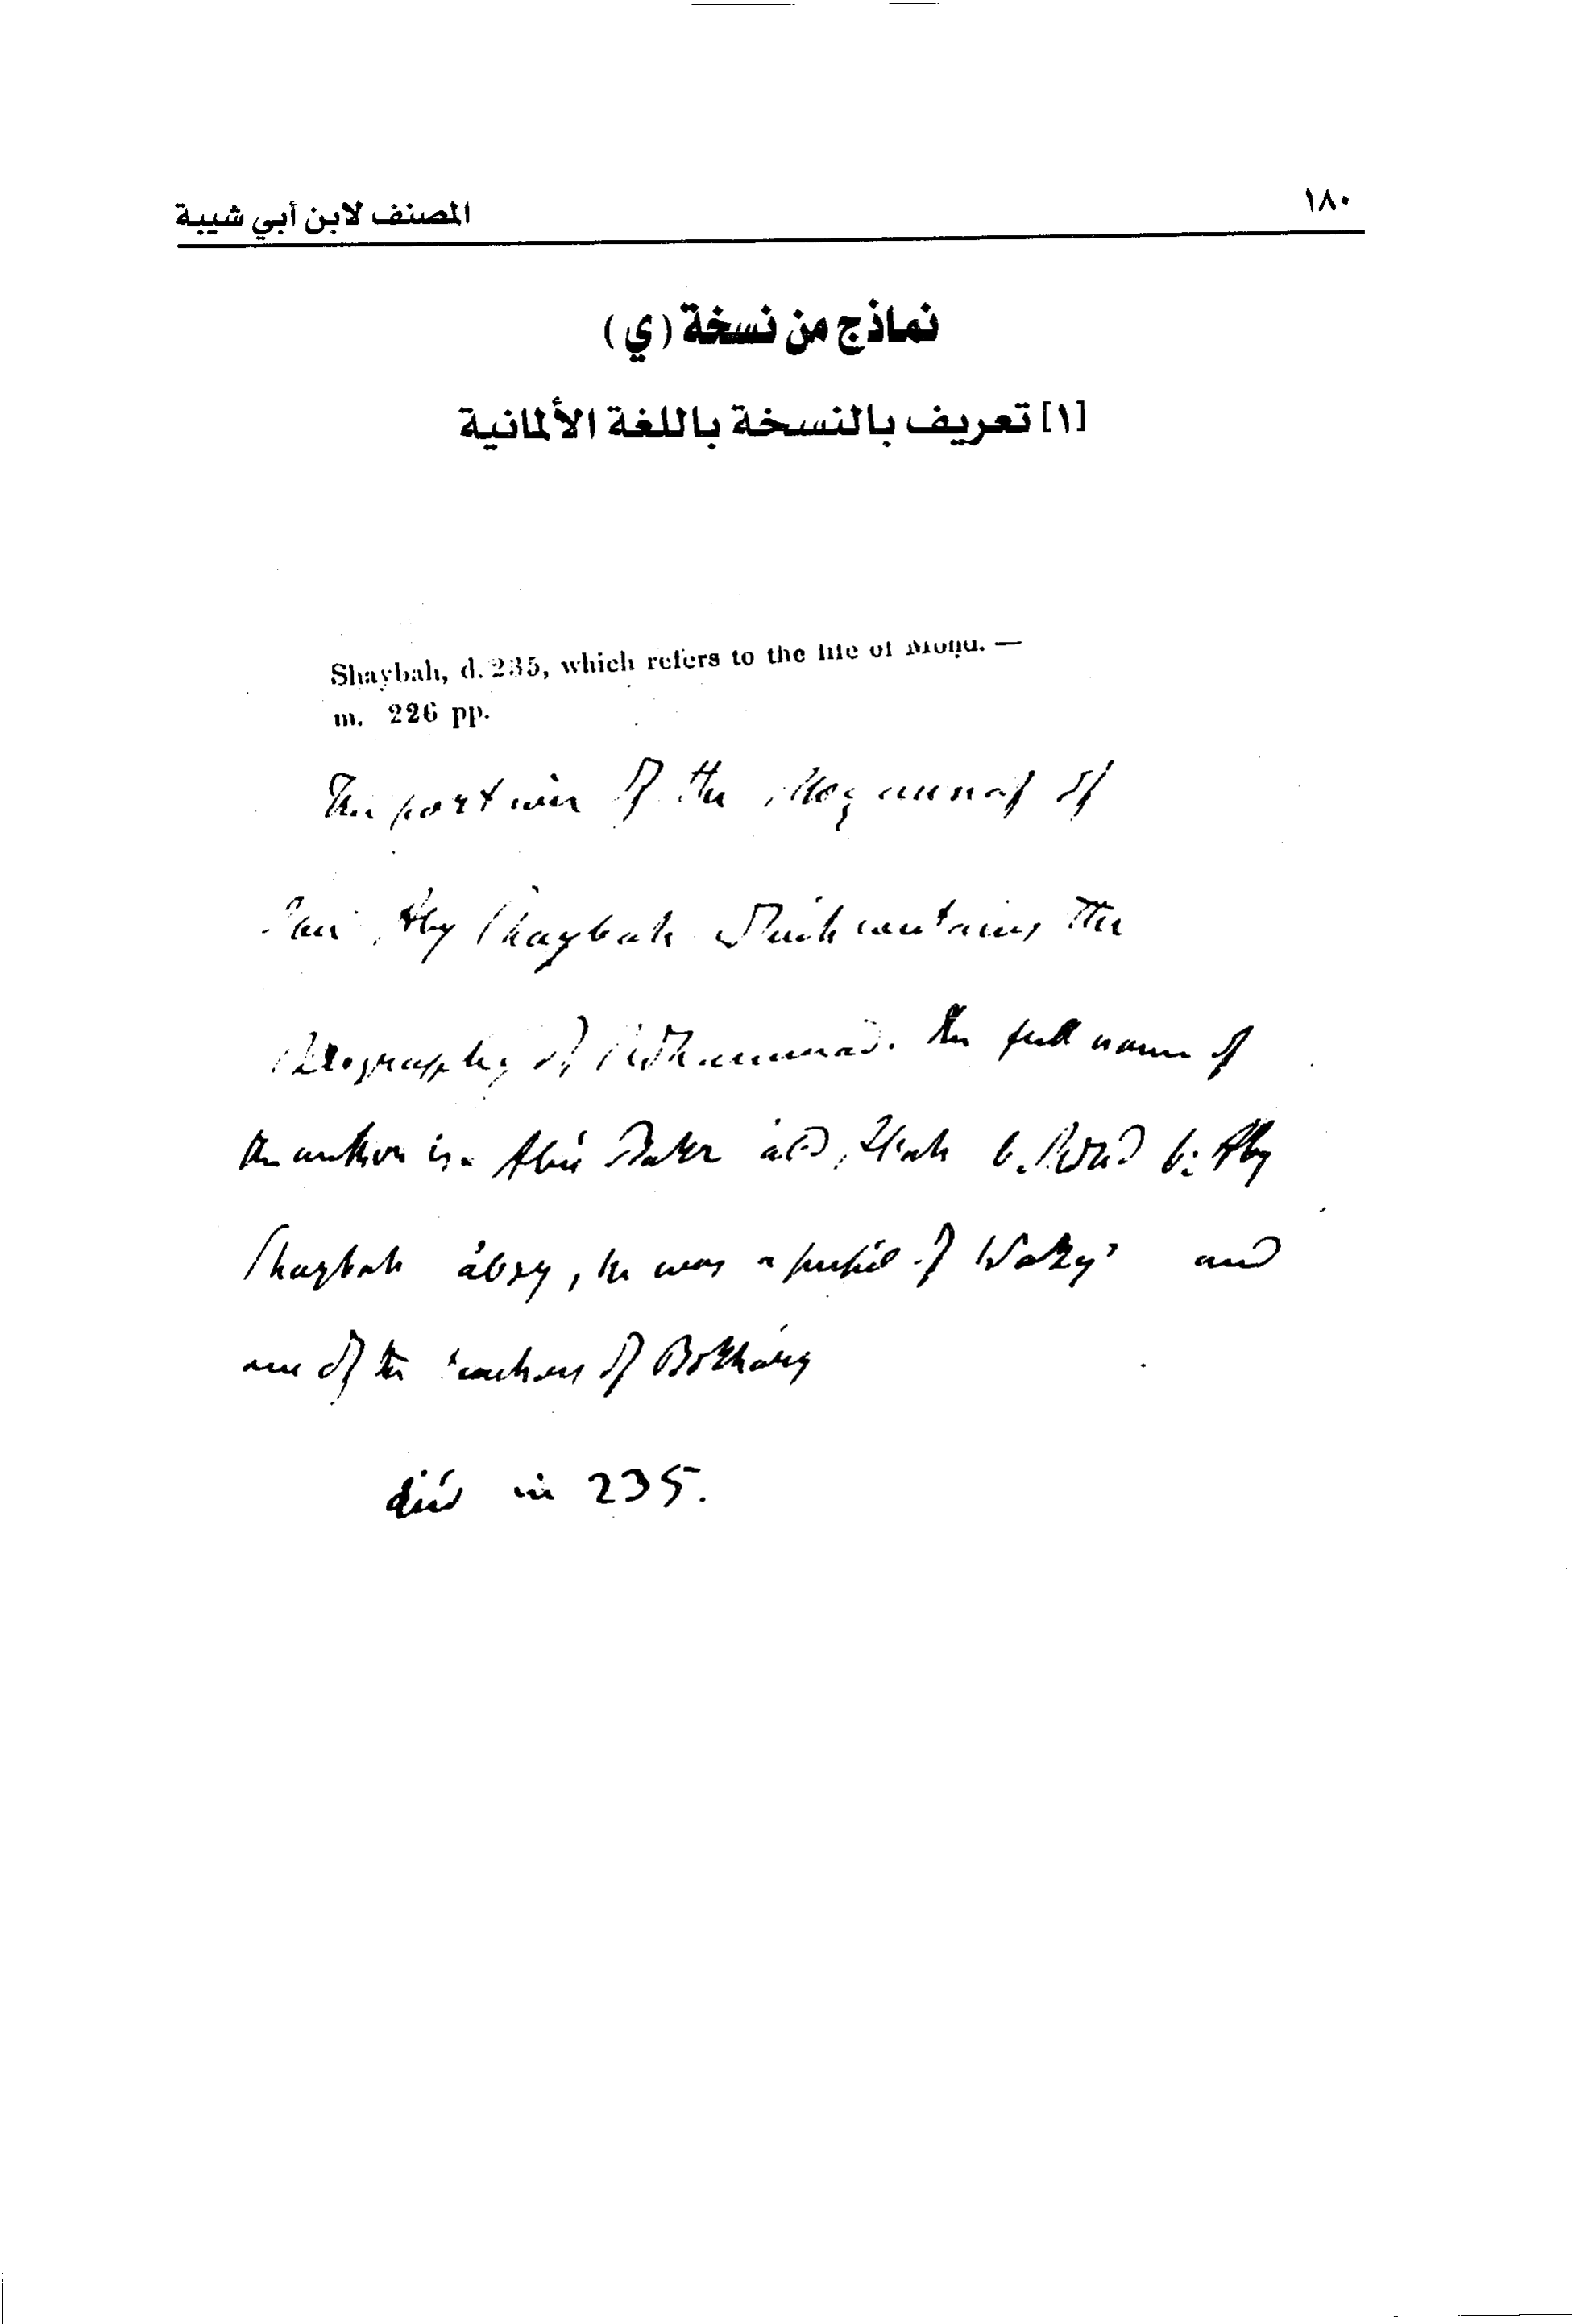 ١٨٠
المصنف لابن أبي شيبة
نماذج من نسخة (ي)
[١] تعريف بالنسخة باللغة الألمانية
Shaybah, d. 235, which refers to the life of Moḥd. —
m. 226 pp.
The portion of the Moçannaf of
Aby Shaybah which contains the
Biography of Mohammad. The full name of
the author is Abú Bakr b. b. Aby
Shaybah 'absy, he was a pupil of Waky' and
one of the teachers of Bokháry
died in 235.